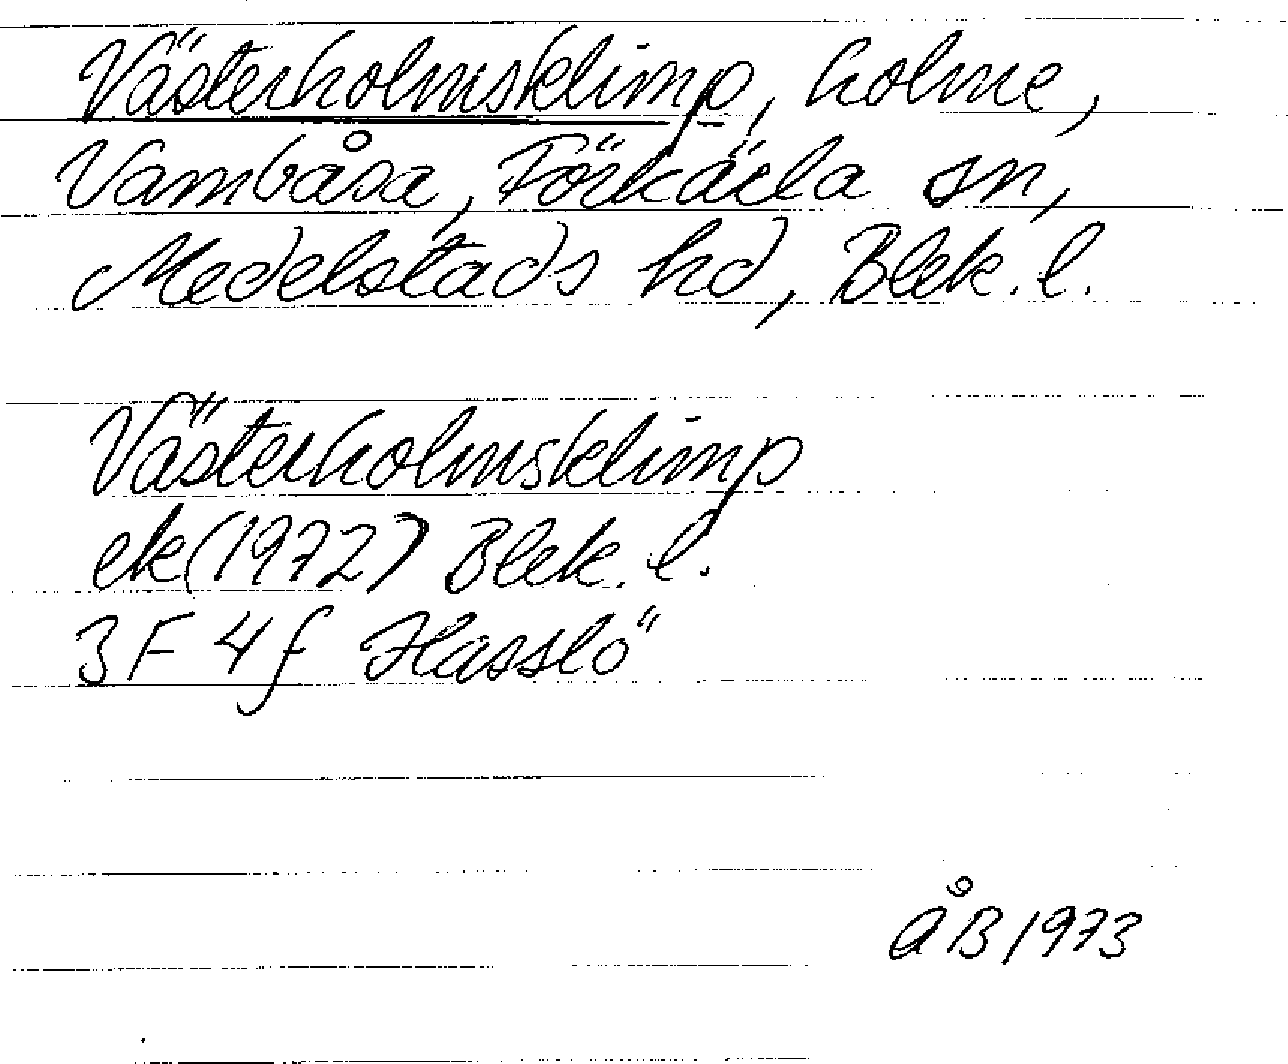 Västerholmsklimp, holme,
Vambåsa, Förkärla sn,
Medelstads hd, Blek. l.
Västerholmsklimp
ek (1972) Blek. l.
3F 4f Hasslö
ÅB 1973